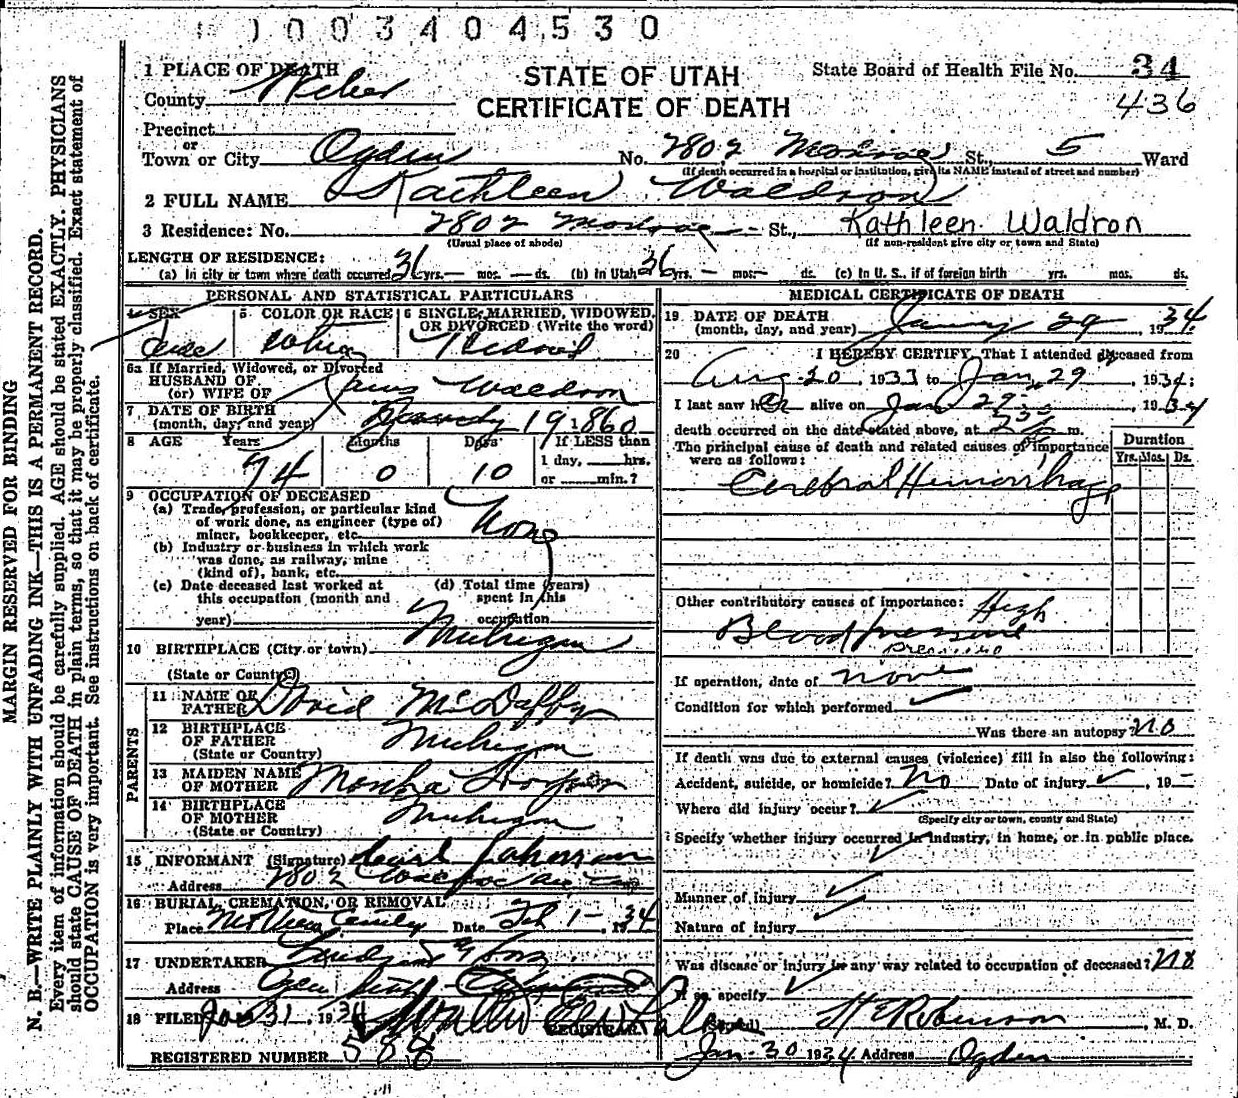 1003404530
1 PLACE OF DEATH
STATE OF UTAH
CERTIFICATE OF DEATH
State Board of Health File No. 34
436
County Weber
Precinct
or
Town or City Ogden No. 2802 Monroe St., 5 Ward
(If death occurred in a hospital or institution, give its NAME instead of street and number)
2 FULL NAME Kathleen Waldron
3 Residence: No. 2802 Monroe St., Kathleen Waldron
(Usual place of abode) (If non-resident give city or town and State)
LENGTH OF RESIDENCE:
(a) In city or town where death occurred 36 yrs. — mos. — ds. (b) In Utah 36 yrs. - mos. - ds. (c) In U. S., if of foreign birth yrs. mos. ds.
PERSONAL AND STATISTICAL PARTICULARS
4 SEX
5 COLOR OR RACE White
6 SINGLE, MARRIED, WIDOWED, OR DIVORCED (Write the word)
Widowed
6a If Married, Widowed, or Divorced
HUSBAND OF
(or) WIFE OF James Waldron
7 DATE OF BIRTH
(month, day, and year) 19 1860
8 AGE Years Months Days If LESS than
74 0 10 1 day, hrs.
or min.?
9 OCCUPATION OF DECEASED
(a) Trade, profession, or particular kind
of work done, as engineer (type of)
miner, bookkeeper, etc. None
(b) Industry or business in which work
was done, as railway, mine
(kind of), bank, etc.
(c) Date deceased last worked at
this occupation (month and
year)
(d) Total time (years)
spent in this
occupation
10 BIRTHPLACE (City or town) Michigan
(State or County)
PARENTS
11 NAME OF
FATHER David
12 BIRTHPLACE
OF FATHER Michigan
(State or Country)
13 MAIDEN NAME
OF MOTHER
14 BIRTHPLACE
OF MOTHER Michigan
(State or Country)
15 INFORMANT (Signature)
Address 2802
16 BURIAL, CREMATION, OR REMOVAL
Place Date Feb 1 - , 1934
17 UNDERTAKER
Address
18 FILED Jan 31, 1934
REGISTRAR
REGISTERED NUMBER 588
MEDICAL CERTIFICATE OF DEATH
19 DATE OF DEATH
(month, day, and year) January 29, 1934
20 I HEREBY CERTIFY, That I attended deceased from
Aug. 20, 1933 to Jan. 29, 1934;
I last saw her alive on Jan 29, 1934
death occurred on the date stated above, at m.
The principal cause of death and related causes of importance
were as follows:
Duration
Yrs. Mos. Ds.
Cerebral Hemorrhage
Other contributory causes of importance: High
Blood pressure
pressure
If operation, date of none
Condition for which performed
Was there an autopsy? no
If death was due to external causes (violence) fill in also the following:
Accident, suicide, or homicide? No Date of injury , 19-
Where did injury occur?
(Specify city or town, county and State)
Specify whether injury occurred in industry, in home, or in public place.
Manner of injury
Nature of injury
Was disease or injury in any way related to occupation of deceased? no
If so, specify
(Signed) H E Robinson, M. D.
Jan-30 1934 Address Ogden
MARGIN RESERVED FOR BINDING
N. B.—WRITE PLAINLY WITH UNFADING INK—THIS IS A PERMANENT RECORD.
Every item of information should be carefully supplied. AGE should be stated EXACTLY. PHYSICIANS
should state CAUSE OF DEATH in plain terms, so that it may be properly classified. Exact statement of
OCCUPATION is very important. See instructions on back of certificate.